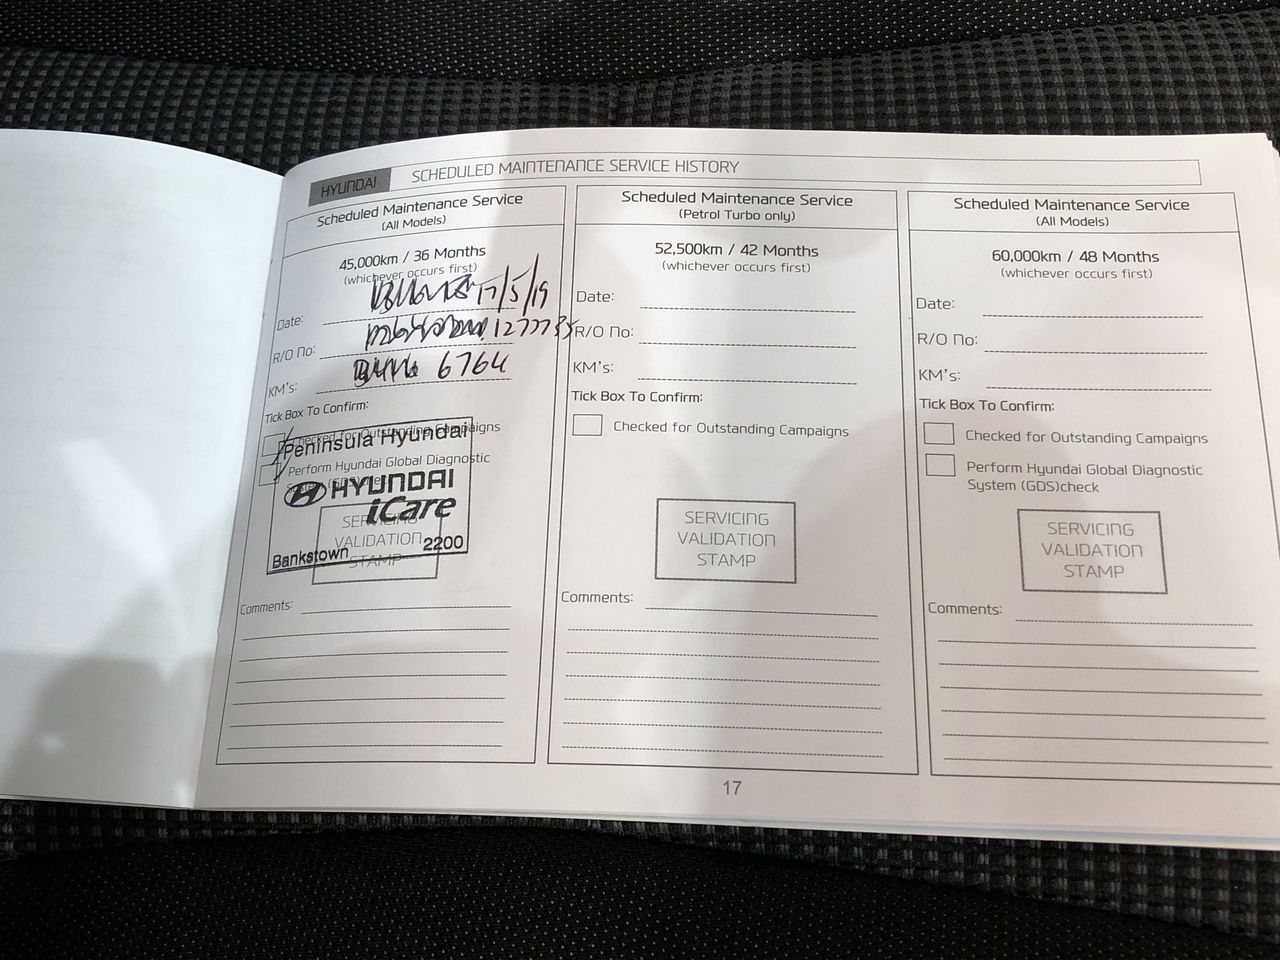 HYUNDAI SCHEDULED MAINTENANCE SERVICE HISTORY
Scheduled Maintenance Service
(All Models)
45,000km / 36 Months
(whichever occurs first)
Date: 17/5/19
R/O No: 1277735
KM's: 6764
Tick Box To Confirm:
Checked for Outstanding Campaigns
Perform Hyundai Global Diagnostic
System (GDS)check
Peninsula Hyundai
HYUNDAI
iCare
Bankstown 2200
SERVICING
VALIDATION
STAMP
Comments:
Scheduled Maintenance Service
(Petrol Turbo only)
52,500km / 42 Months
(whichever occurs first)
Date:
R/O No:
KM's:
Tick Box To Confirm:
Checked for Outstanding Campaigns
SERVICING
VALIDATION
STAMP
Comments:
Scheduled Maintenance Service
(All Models)
60,000km / 48 Months
(whichever occurs first)
Date:
R/O No:
KM's:
Tick Box To Confirm:
Checked for Outstanding Campaigns
Perform Hyundai Global Diagnostic
System (GDS)check
SERVICING
VALIDATION
STAMP
Comments:
17